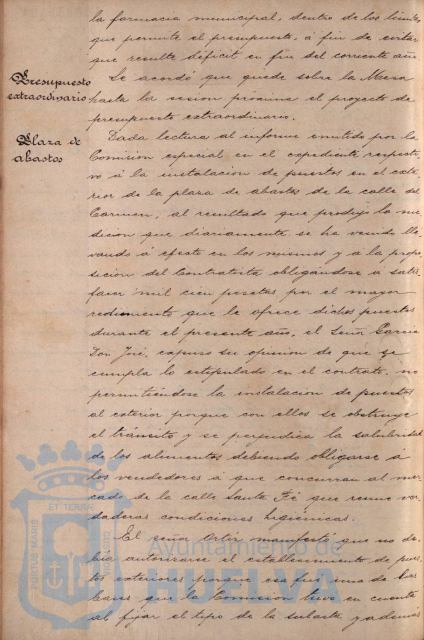 la farmacia municipal, dentro de los límites
que permite el presupuesto, á fin de evitar
que resulte déficit en fin del corriente año
Presupuesto
extraordinario
Se acordó que quede sobre la Mesa
hasta la sesión próxima el proyecto de
presupuesto extraordinario.
Plaza de
abastos
Dada lectura al informe emitido por la
Comisión especial en el expediente respecti-
vo á la instalacion de puestos en el exte-
rior de la plaza de abastos de la calle del
Carmen, al resultado que produjo la me-
dicion que diariamente se ha venido lle-
vando á efecto en los mismos y á la propo-
sicion del Contratista obligándose á satis-
facer mil cien pesetas por el mayor
rendimiento que le ofrece dichos puestos
durante el presente año, el Señor Garcia
Don José, expuso su opinion de que se
cumpla lo estipulado en el contrato, no
permitiéndose la instalacion de puestos
al exterior porque con ellos se obstruye
el tránsito y se perjudica la salubridad
de los alimentos debiendo obligarse á
los vendedores á que concurran al mer-
cado de la calle Santa Fé que reune ver-
daderas condiciones higiénicas.
El señor Ortiz manifestó que no de-
bía autorizarse el establecimiento de pues-
tos exteriores porque esa fué una de las
bases que la Comisión tuvo en cuenta
al fijar el tipo de la subasta y además
PORTUS MARIS
ET TERRAE
Ayuntamiento de
HUELVA